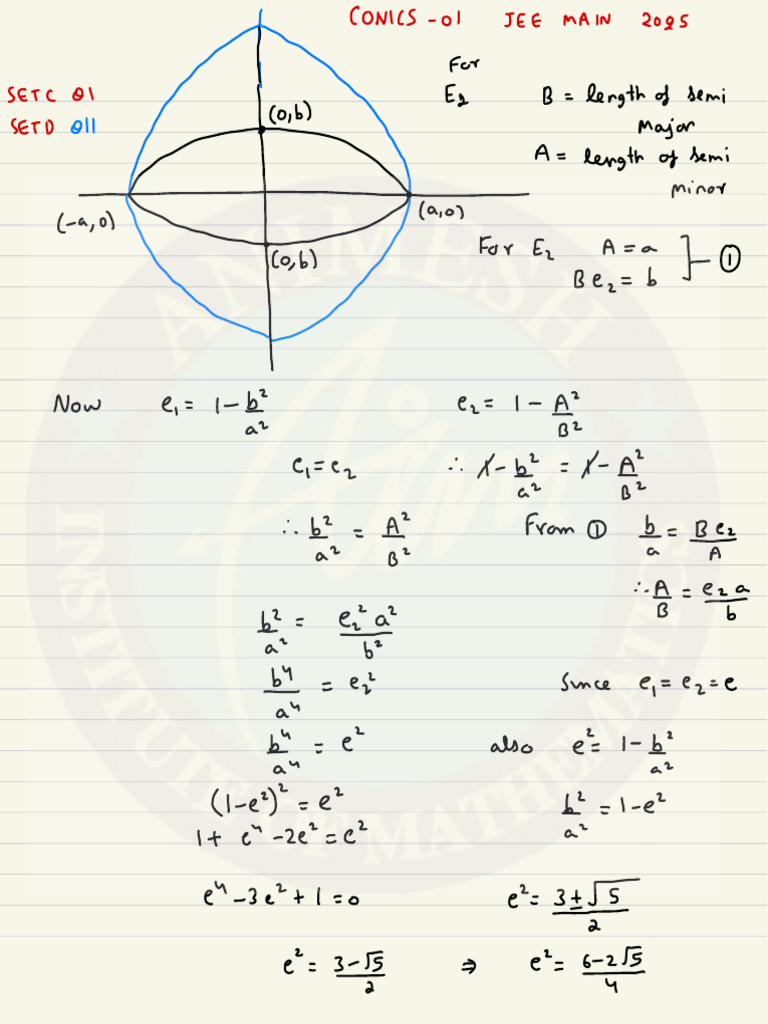 CONICS -01 JEE MAIN 2025
SETC 01
SETD 011
For
E₂ B = length of semi
Major
A = length of semi
minor
(0,b)
(-a,0)
(a,0)
(0,b)
For E₂ A = a
B e₂ = b ] — ①
Now e₁ = 1 - b²/a² e₂ = 1 - A²/B²
e₁ = e₂ ∴ 1 - b²/a² = 1 - A²/B²
∴ b²/a² = A²/B² From ① b/a = B e₂/A
∴ A/B = e₂ a/b
b²/a² = e₂² a²/b²
b⁴/a⁴ = e₂² Since e₁ = e₂ = e
b⁴/a⁴ = e² also e² = 1 - b²/a²
(1-e²)² = e² b²/a² = 1-e²
1 + e⁴ - 2e² = e²
e⁴ - 3e² + 1 = 0 e² = 3±√5/2
e² = 3-√5/2 ⇒ e² = 6-2√5/4
ANIMESH
Aim
INSTITUTE OF MATHEMATICS